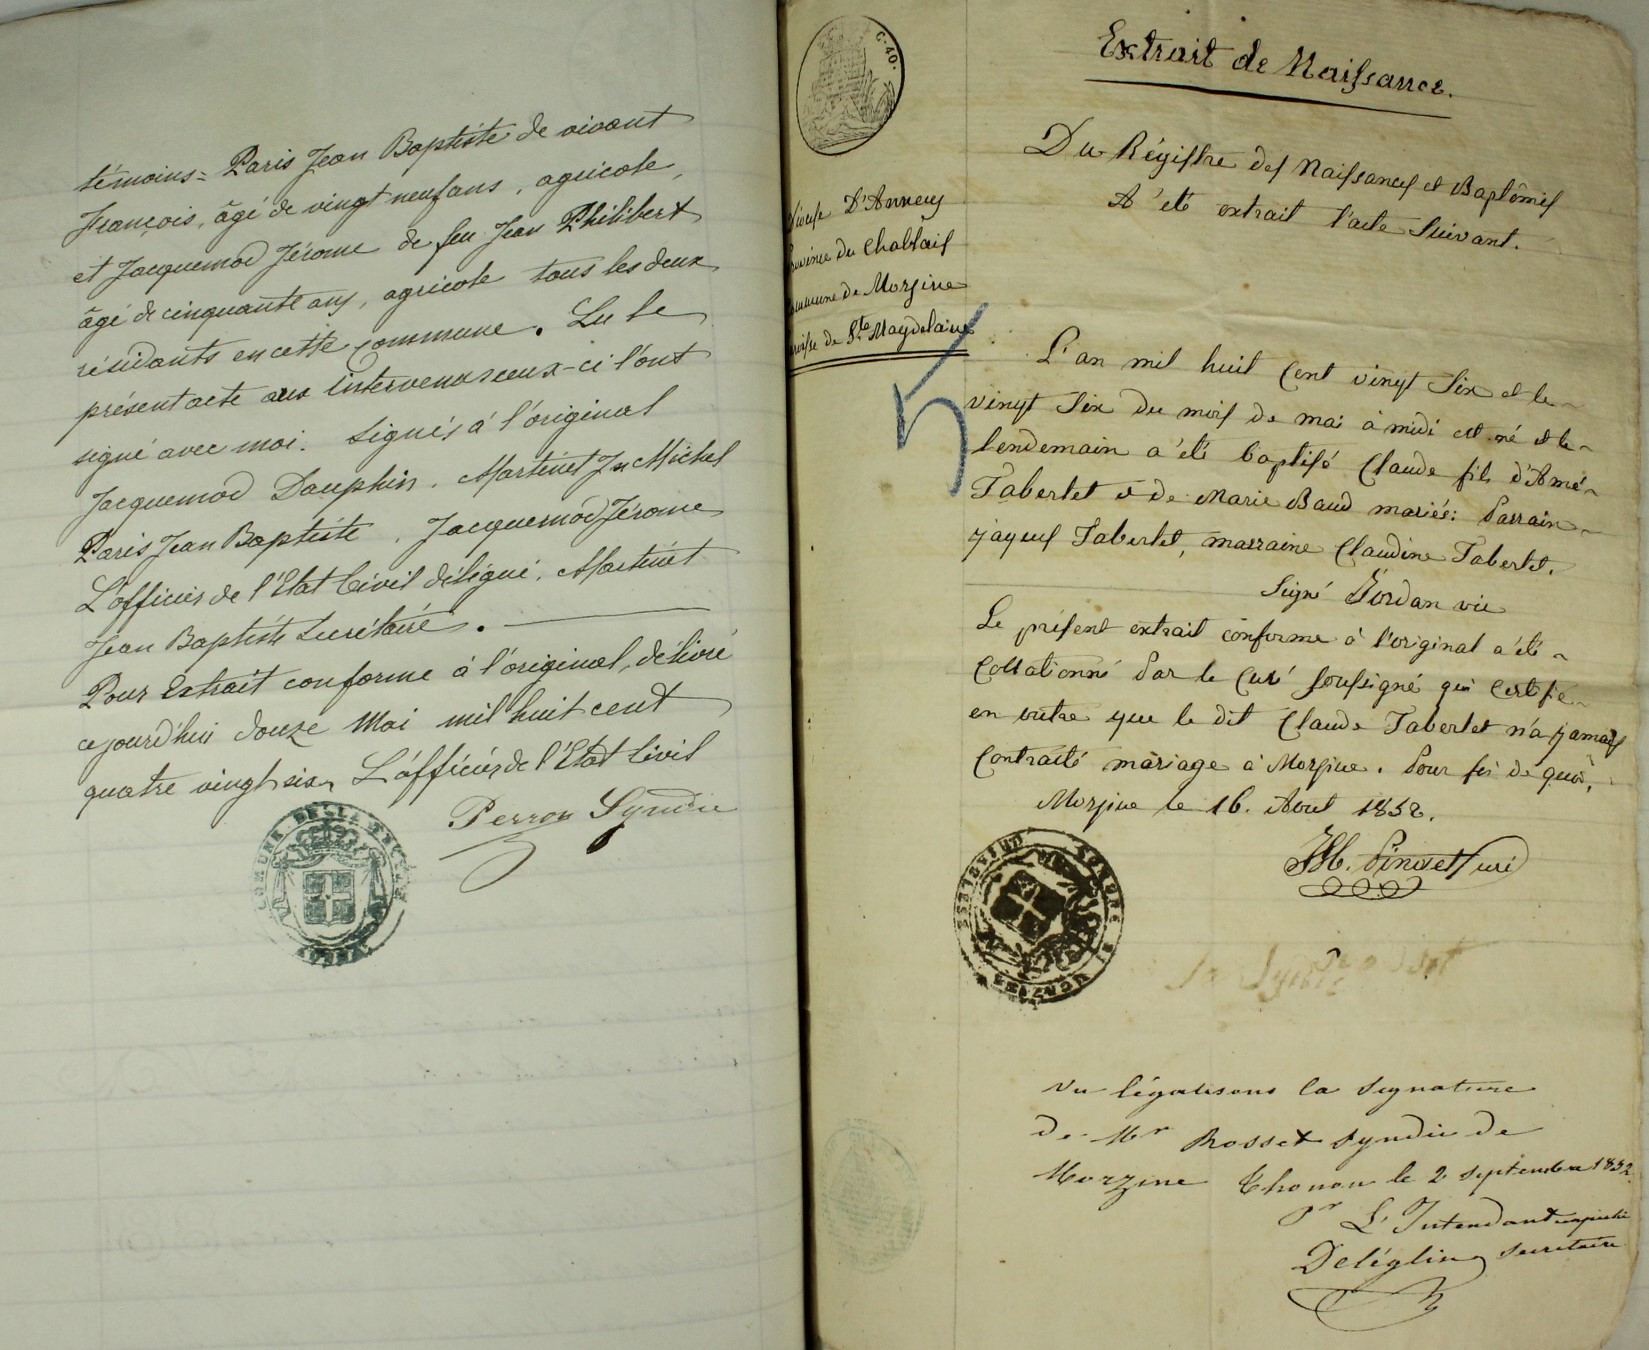 témoins = Paris Jean Baptiste de vivant
François, âgé de vingt neuf ans, agricole,
et Jacquemod Jérome de feu Jean Philibert
âgé de cinquante ans, agricole tous les deux
résidants en cette commune. Lu le
présent acte aux intervenus ceux-ci l'ont
signé avec moi. Signés à l'original
Jacquemod Dauphin, Martinet Jn Michel
Paris Jean Baptiste, Jacquemod Jérome
L'officier de l'Etat Civil délégué, Martinet
Jean Baptiste Secrétaire.
Pour Extrait conforme à l'original, délivré
ce jourd'hui douze Mai mil huit cent
quatre vingt six, L'officier de l'Etat Civil
Perron Syndic
C. 40.
Extrait de Naissance.
Du Régistre des Naissances et Baptêmes
A été extrait l'acte Suivant.
D'Annecy
du Chablais
Commune de Morzine
de Ste Magdelaine
5
L'an mil huit Cent vingt Six et le
vingt Six du mois de mai à midi est né et le
lendemain a été baptisé Claude fils d'Amé
Taberlet & de Marie Baud mariés: Parrain
jaques Taberlet, marraine Claudine Taberlet.
Signé Jordan vic
Le présent extrait conforme à l'original a été
Collationné Par le Curé soussigné qui Certifie
en outre que le dit Claude Taberlet n'a jamais
Contracté mariage à Morzine. Pour foi de quoi,
Morzine le 16. Avril 1852.
Pinget Curé
Vu légalisons la Signature
de Mr Rosset Syndic de
Morzine Thonon le 2 septembre 1852.
Pr L'Intendant empêché
Deléglin Secrétaire